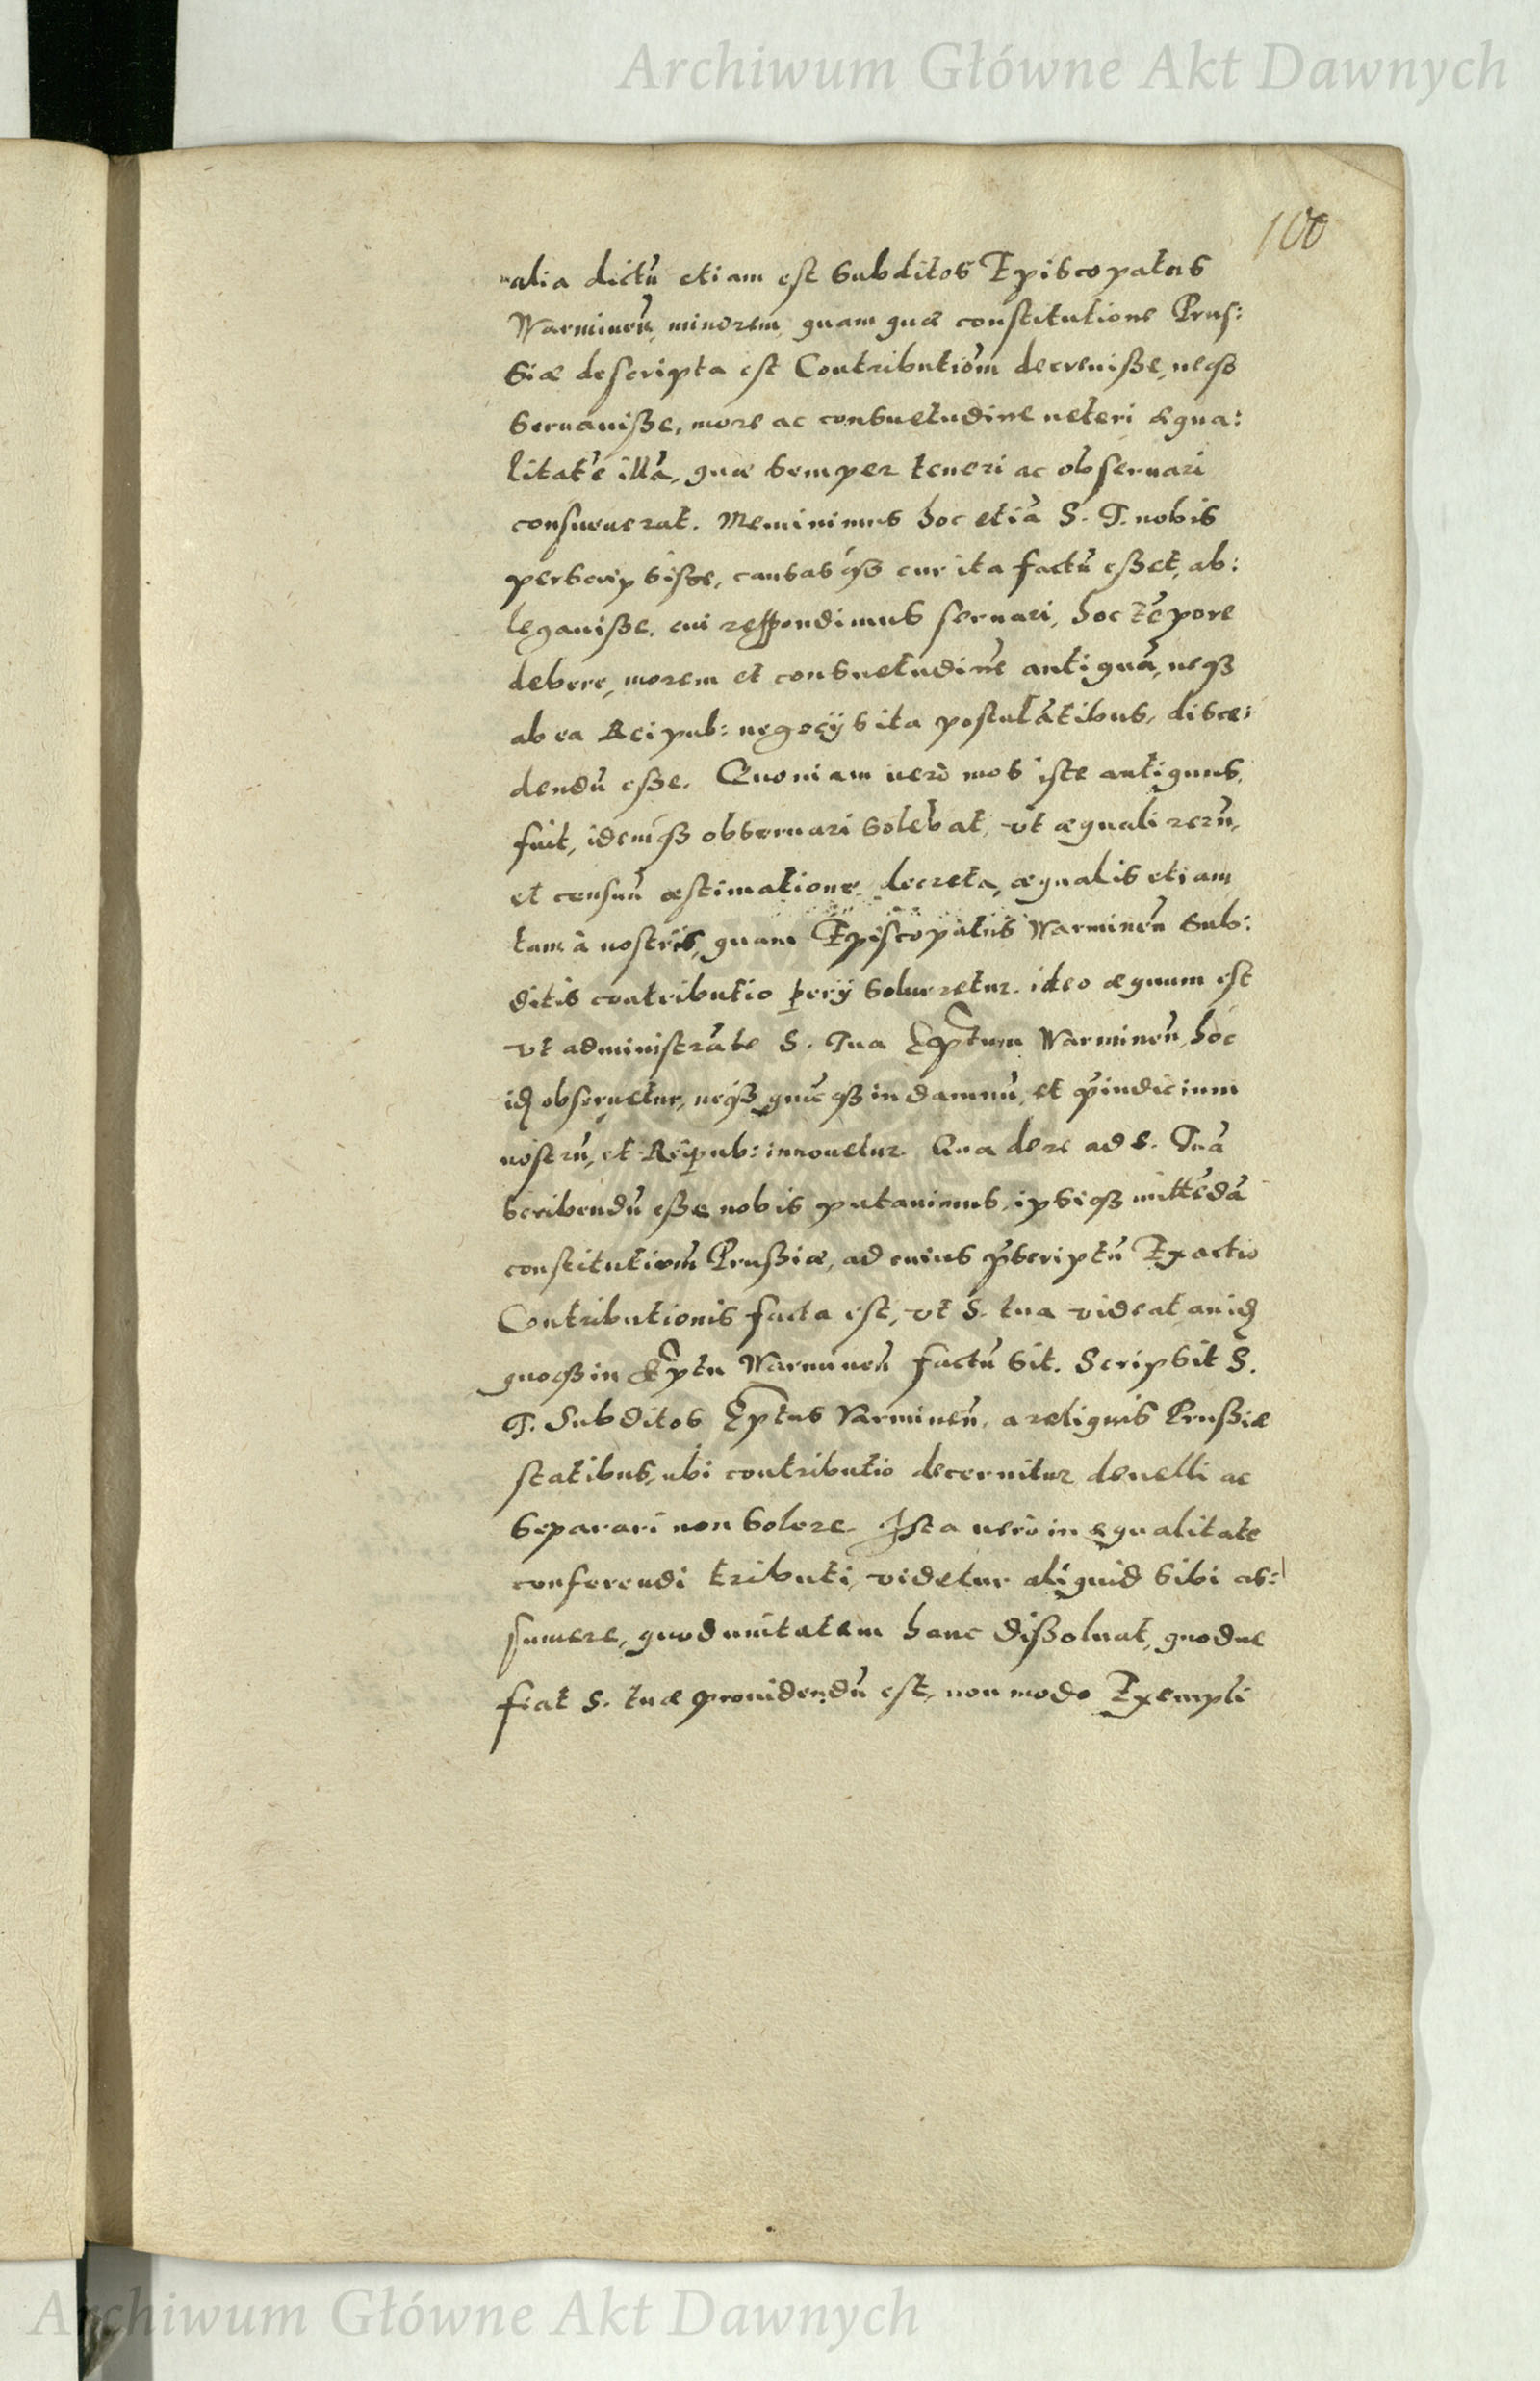 Archiwum Główne Akt Dawnych
100
alia dictū etiam est Subditos Episcopatus
Warmineñ, minorem, quam quæ constitutione Prus:
siæ descripta est Contributiōm decreuiße, neqȝ
seruauiße, more ac consuetudine ueteri æqua:
litatē illā, quæ semper teneri ac obseruari
consueuerat. Meminimus hoc etiā S. T. nobis
perscripsisse, causasqȝ cur ita factū eßet, ab:
legauiße. cui respondimus seruari, hoc tēpore
debere, morem et consuetudinē antiquā, neqȝ
ab ea Reipub: negocÿs ita postulātibus, disce:
dendū eße. Quoniam uerò mos iste antiquus,
fuit, idemqȝ obseruari solebat, vt æquali rerū,
et censuū æstimatione decreta, æqualis etiam
tam à nostris, quam Episcopatus Warmineñ Sub:
ditis contributio solueretur. ideo æquum est
vt administrāte S. Tua Eptum Warmineñ, hoc
idē obseruetur, neqȝ quicqȝ in damnū, et p̄iudicium
nostrū, et Reipub: innouetur. Qua de re ad S. Tuā
scribendū eße nobis putauimus, ipsiqȝ mittēdā
constitutiōm Prußiæ, ad cuius p̄scriptū Exactio
Contributionis facta est, vt S. tua videat, an idē
quoqȝ in Eptu Warmineñ factū sit. Scripsit S.
T. Subditos Eptus Varmineñ, a reliquis Prußiæ
statibus, ubi contributio decernitur deuelli ac
separari non solere. Ista uerò inæqualitate
conferendi tributi, videtur aliquid sibi as:
sumere, quod unitatem hanc dißoluat, quod ne
fiat S. tuæ prouidendū est, non modo Exempli
Archiwum Główne Akt Dawnych